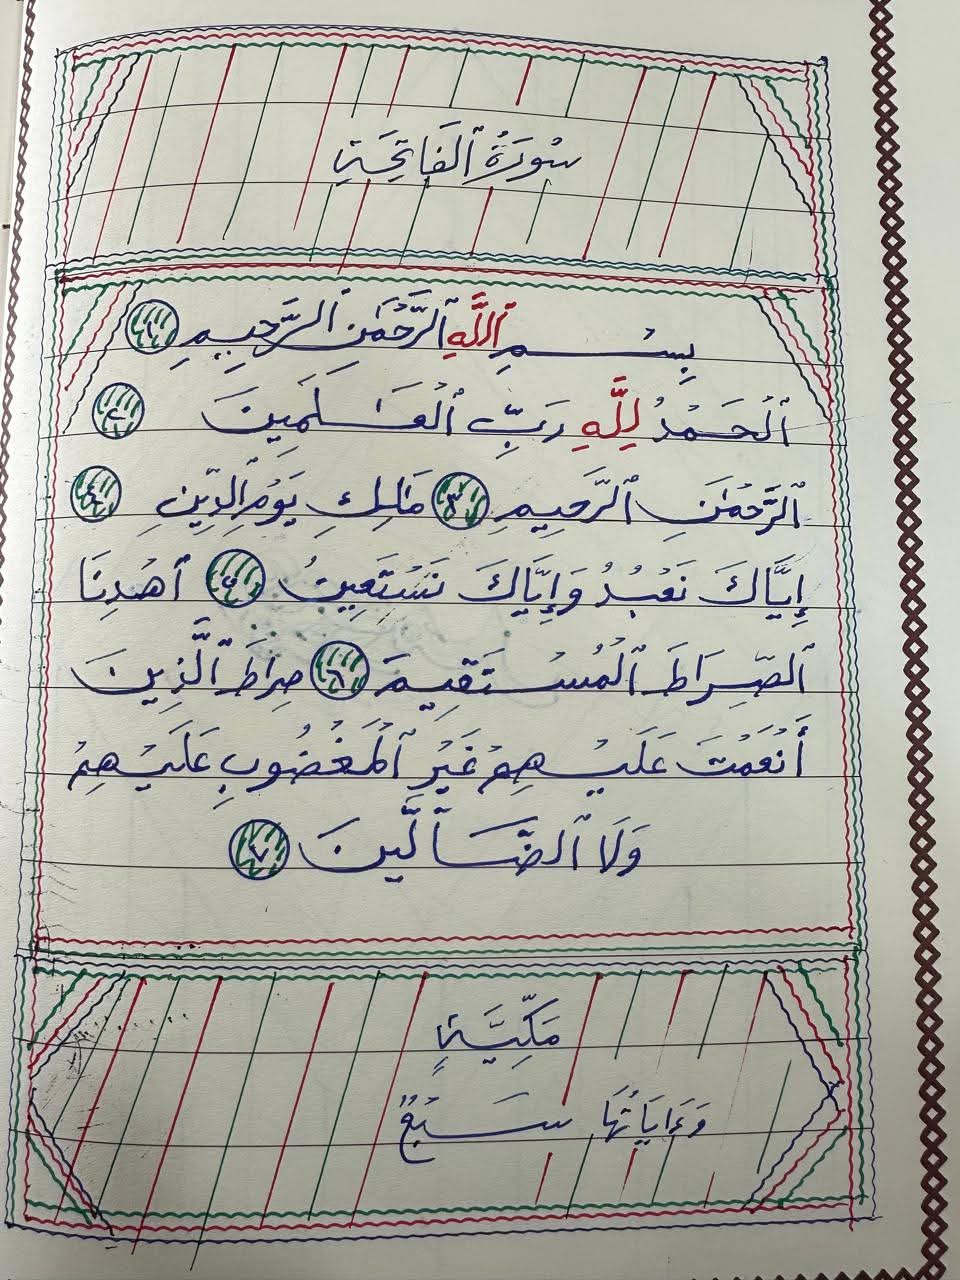 سُورَةُ ٱلْفَاتِحَةِ
بِسْمِ ٱللَّهِ ٱلرَّحْمَٰنِ ٱلرَّحِيمِ ١
ٱلْحَمْدُ لِلَّهِ رَبِّ ٱلْعَٰلَمِينَ ٢
ٱلرَّحْمَٰنِ ٱلرَّحِيمِ ٣ مَٰلِكِ يَوْمِ ٱلدِّينِ ٤
إِيَّاكَ نَعْبُدُ وَإِيَّاكَ نَسْتَعِينُ ٥ ٱهْدِنَا
ٱلصِّرَاطَ ٱلْمُسْتَقِيمَ ٦ صِرَاطَ ٱلَّذِينَ
أَنْعَمْتَ عَلَيْهِمْ غَيْرِ ٱلْمَغْضُوبِ عَلَيْهِمْ
وَلَا ٱلضَّآلِّينَ ٧
مَكِّيَّةٍ
وَءَايَاتُهَا سَبْعٌ